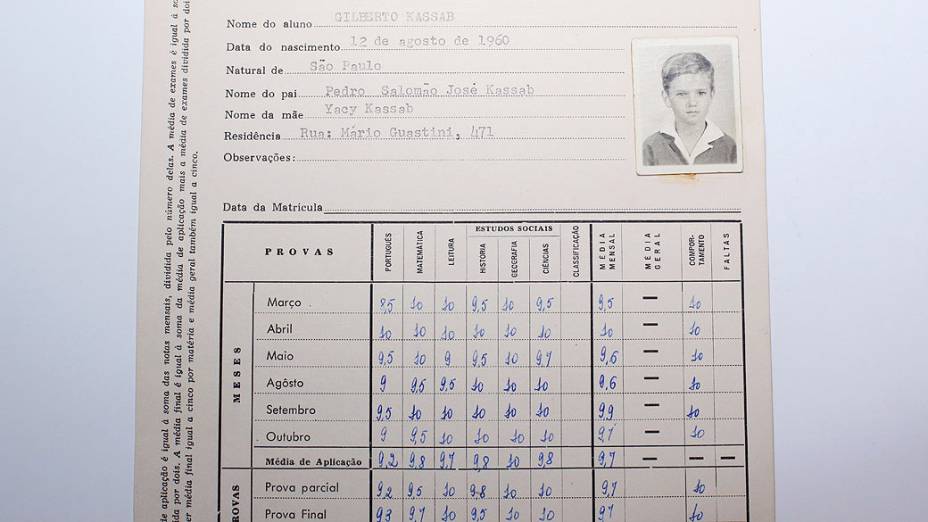 Nome do aluno GILBERTO KASSAB
Data do nascimento 12 de agosto de 1960
Natural de São Paulo
Nome do pai Pedro Salomão José Kassab
Nome da mãe Yacy Kassab
Residência Rua: Mário Guastini, 471
Observações:
Data da Matrícula
PROVAS PORTUGUÊS MATEMÁTICA LEITURA ESTUDOS SOCIAIS HISTORIA GEOGRAFIA CIÊNCIAS CLASSIFICAÇÃO MÉDIA MENSAL MÉDIA GERAL COMPOR-TAMENTO FALTAS
MESES
Março 8,5 10 10 9,5 10 9,5 9,5 — 10
Abril 10 10 10 10 10 10 10 — 10
Maio 9,5 10 9 9,5 10 9,7 9,6 — 10
Agôsto 9 9,5 9,5 10 10 10 9,6 — 10
Setembro 9,5 10 10 10 10 10 9,9 — 10
Outubro 9 9,5 10 10 10 10 9,7 — 10
Média de Aplicação 9,2 9,8 9,7 9,8 10 9,8 9,7 — — —
Prova parcial 92 95 10 9,8 10 10 9,7 10
Prova Final 93 9,7 10 9,5 10 10 97 10
de aplicação é igual à soma das notas mensais, dividida pelo número delas. A média de exames é igual à so
dida por dois. A média final é igual à soma da média de aplicação mais a média de exames dividida por dois
ser média final igual a cinco por matéria e média geral também igual a cinco.